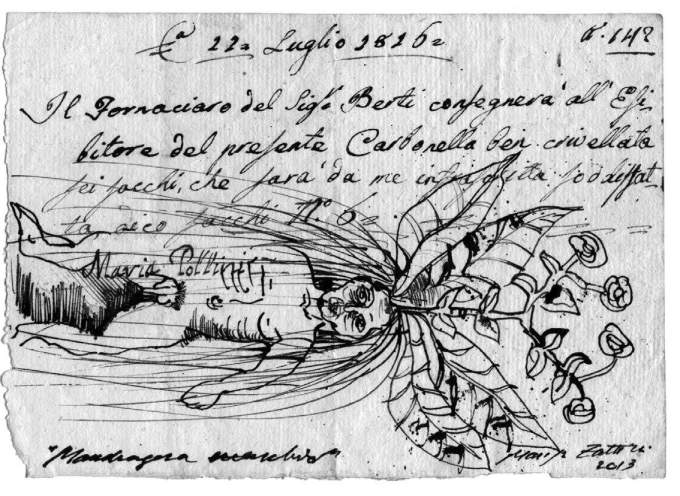 22. Luglio 1826 N. 142
Il Fornaciaro del Sig.r Berti consegnerà all' Esi
bitore del presente Carbonella ben crivellata
sei sacchi, che sarà da me in soddisfat
ta dico sacchi N.o 6
Maria Pollini
"Mandragora maschio"
Zattini
2013